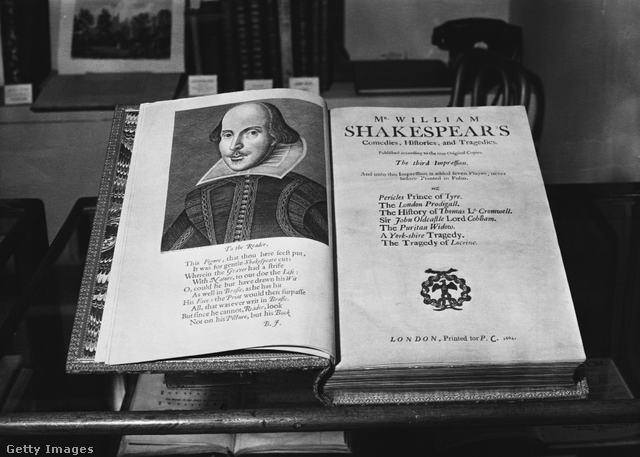 To the Reader.
This Figure, that thou here seest put,
It was for gentle Shakespeare cut:
Wherein the Graver had a strife
With Nature, to out doe the Life:
O, could he but have drawn his Wit
As well in Brasse, as he has hit
His Face; the Print would then surpasse
All, that was ever writ in Brasse.
But since he cannot, Reader, look
Not on his Picture, but his Book
B. J.
Mr. WILLIAM
SHAKESPEAR'S
Comedies, Histories, and Tragedies.
Published according to the true Original Copies.
The third Impression.
And unto this Impression is added seven Playes, never
before Printed in Folio.
viz.
Pericles Prince of Tyre.
The London Prodigall.
The History of Thomas Ld. Cromwell.
Sir John Oldcastle Lord Cobham.
The Puritan Widow.
A York-shire Tragedy.
The Tragedy of Locrine.
LONDON, Printed for P. C. 1664.
Getty Images